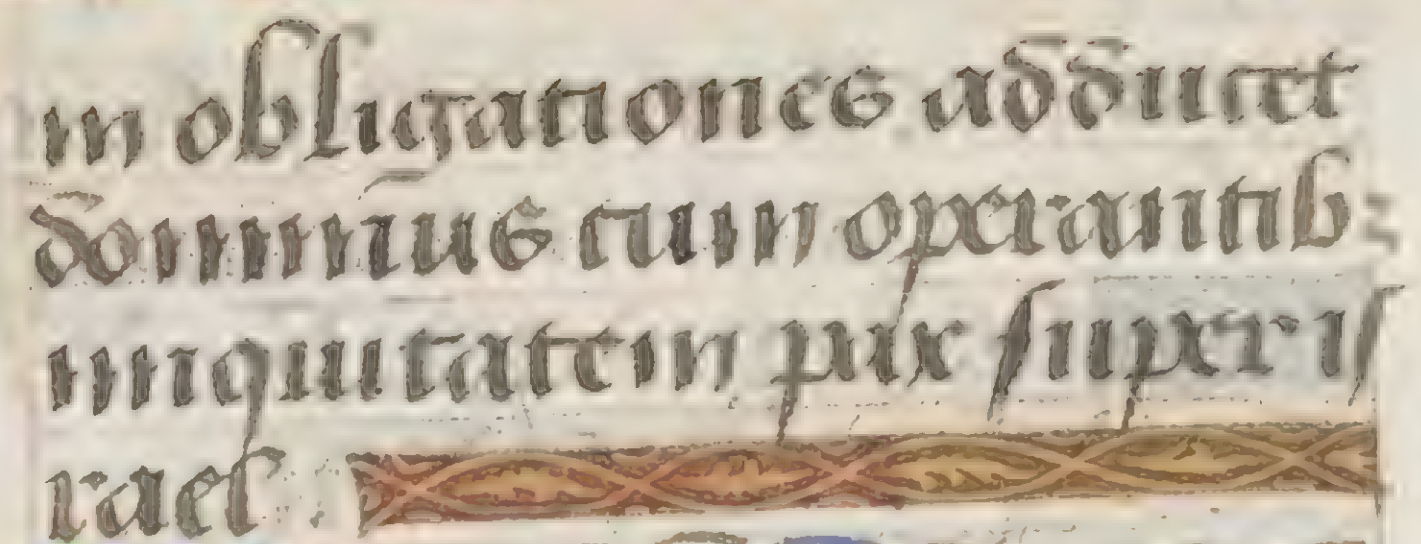 in obligationes adducet
dominus cum operantib:
iniquitatem pax super is
rael.